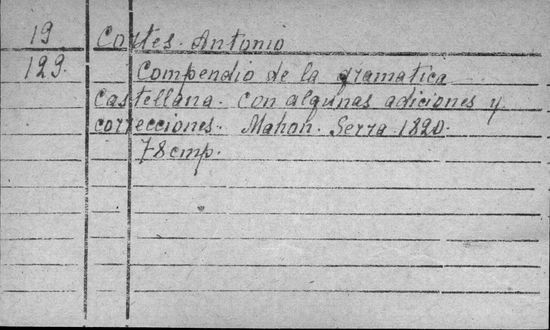 19 Cortes. Antonio
129. Compendio de la gramatica
Castellana. con algunas adiciones y
correcciones. Mahon. Serra 1820.
78 cmp.